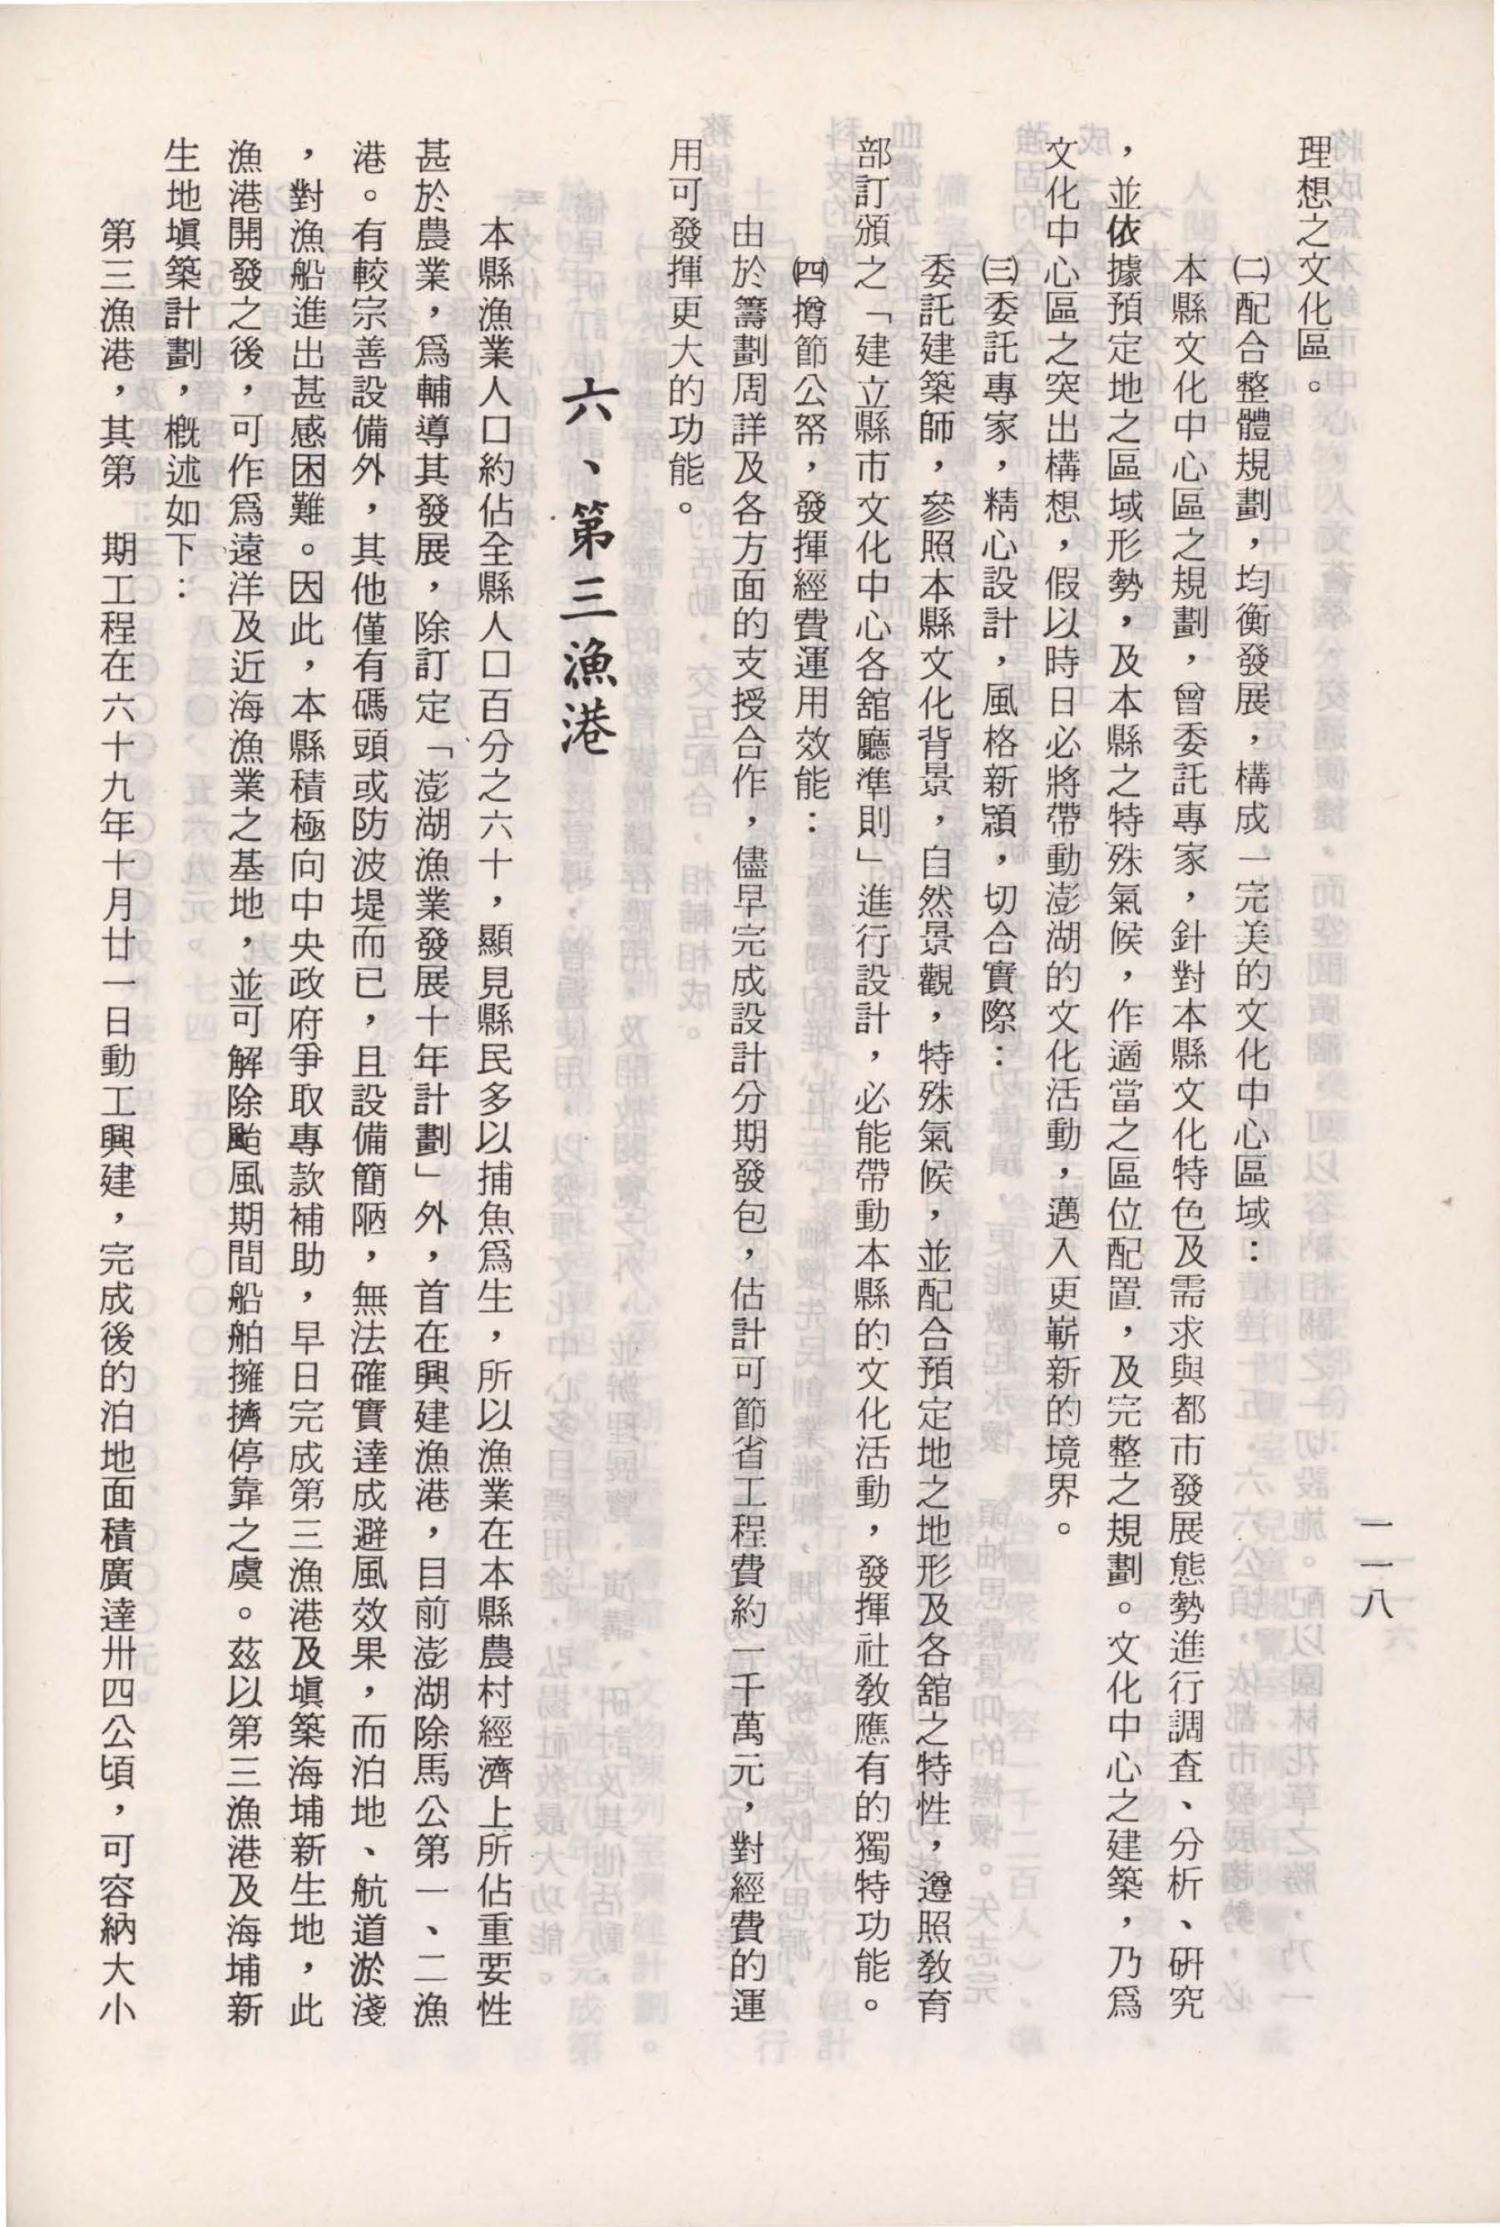 一一八
理想之文化區。
㈡配合整體規劃，均衡發展，構成一完美的文化中心區域：
本縣文化中心區之規劃，曾委託專家，針對本縣文化特色及需求與都市發展態勢進行調查、分析、研究
，並依據預定地之區域形勢，及本縣之特殊氣候，作適當之區位配置，及完整之規劃。文化中心之建築，乃爲
文化中心區之突出構想，假以時日必將帶動澎湖的文化活動，邁入更嶄新的境界。
㈢委託專家，精心設計，風格新穎，切合實際：
委託建築師，參照本縣文化背景，自然景觀，特殊氣候，並配合預定地之地形及各舘之特性，遵照敎育
部訂頒之「建立縣市文化中心各舘廳準則」進行設計，必能帶動本縣的文化活動，發揮社敎應有的獨特功能。
㈣撙節公帑，發揮經費運用效能：
由於籌劃周詳及各方面的支授合作，儘早完成設計分期發包，估計可節省工程費約一千萬元，對經費的運
用可發揮更大的功能。
六、第三漁港
本縣漁業人口約佔全縣人口百分之六十，顯見縣民多以捕魚爲生，所以漁業在本縣農村經濟上所佔重要性
甚於農業，爲輔導其發展，除訂定「澎湖漁業發展十年計劃」外，首在興建漁港，目前澎湖除馬公第一、二漁
港。有較宗善設備外，其他僅有碼頭或防波堤而已，且設備簡陋，無法確實達成避風效果，而泊地、航道淤淺
，對漁船進出甚感困難。因此，本縣積極向中央政府爭取專款補助，早日完成第三漁港及塡築海埔新生地，此
漁港開發之後，可作爲遠洋及近海漁業之基地，並可解除颱風期間船舶擁擠停靠之虞。茲以第三漁港及海埔新
生地塡築計劃，槪述如下：
第三漁港，其第　期工程在六十九年十月廿一日動工興建，完成後的泊地面積廣達卅四公頃，可容納大小